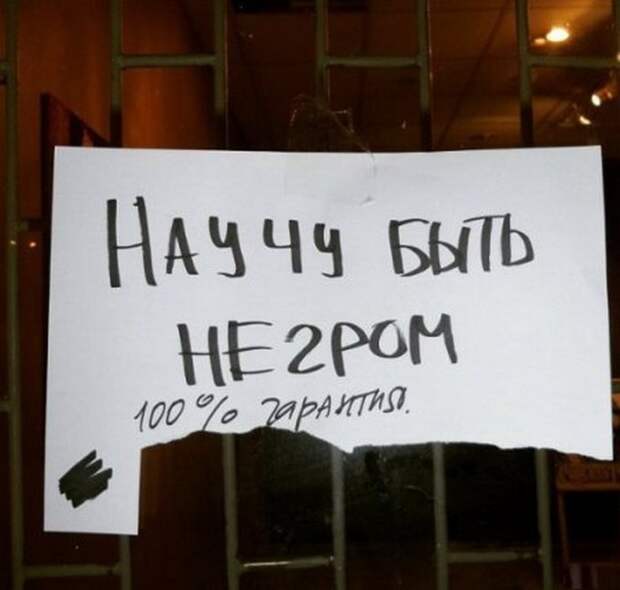 НАУЧУ БЫТЬ
НЕГРОМ
100% гАРАНТИЯ.